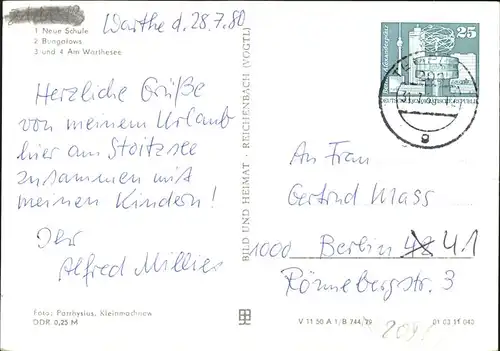 Warthe d. 28.7.80
1 Neue Schule
2 Bungalows
3 und 4 Am Warthesee
Herzliche Grüße
von meinem Urlaub
hier am
zusammen mit
meinen Kindern!
Ihr
Alfred
Foto: Parrhysius, Kleinmachnow
DDR 0,25 M
BILD UND HEIMAT · REICHENBACH (VOGTL)
25
DEUTSCHE DEMOKRATISCHE REPUBLIK
g
An Frau
Gertrud Mass
1000 Berlin 48 41
Rönnebergstr. 3
V 11 50 A 1/B 744/79 01 03 11 040